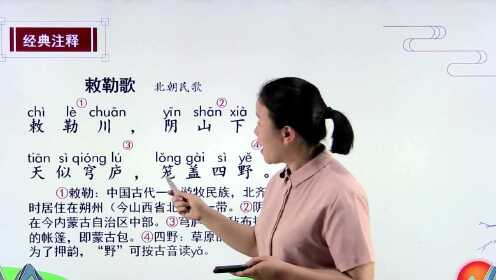 经典注释
敕勒歌 北朝民歌
chì lè chuān yīn shān xià
① ②
敕勒川，阴山下
③ ④
tiān sì qióng lú lǒng gài sì yě
天似穹庐，笼盖四野。
①敕勒：中国古代一 游牧民族，北齐
时居住在朔州（今山西省北 一带。②阴
在今内蒙古自治区中部。③穹庐
的帐篷，即蒙古包。④四野：草原
为了押韵，“野”可按古音读yǎ。